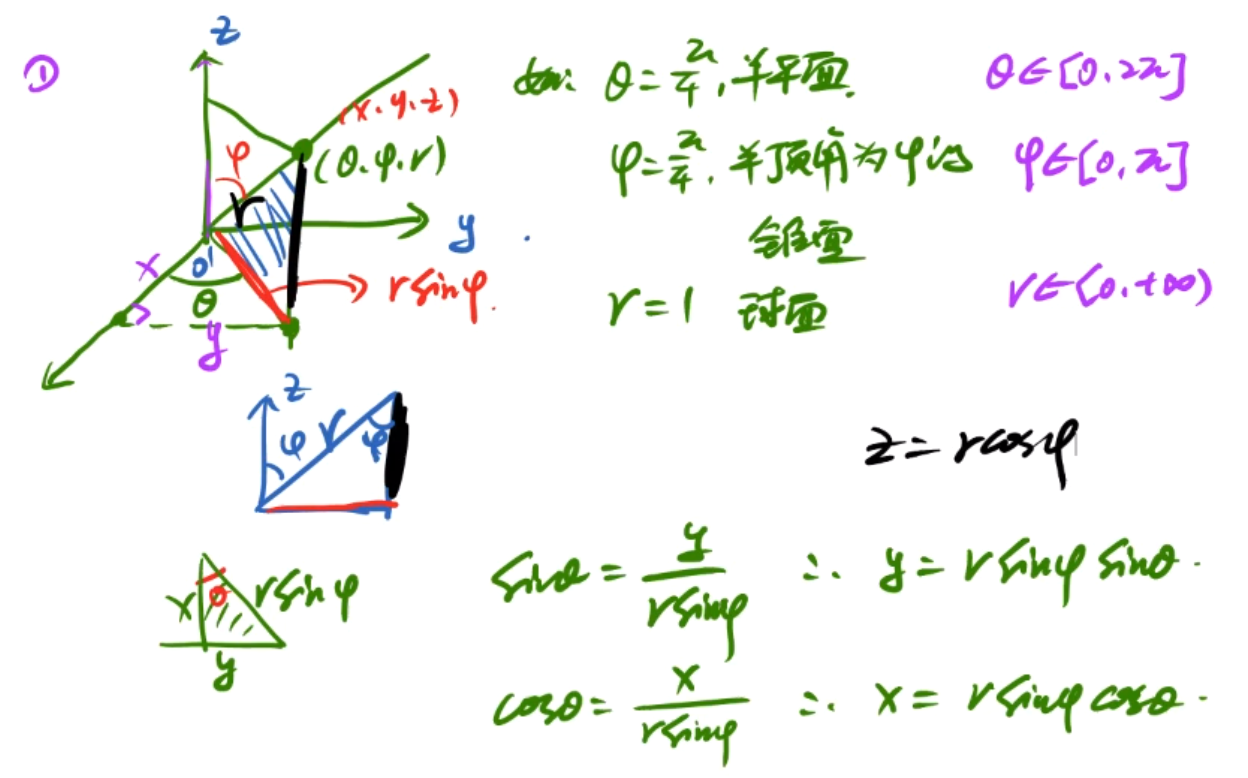 ①
z
(x.y.z)
φ
(θ.φ.r)
r
y
x
O
θ
r sinφ.
y
如: θ=π/4, 半平面.
θ∈[0.2π]
φ=π/4, 半顶角为φ的
φ∈[0,π]
锥面
r=1 球面
r∈[0.+∞)
z
φ
r
φ
z=rcosφ
x
θ
r sinφ
y
sinθ = y/(r sinφ) ∴ y= r sinφ sinθ.
cosθ= x/(r sinφ) ∴ x= r sinφ cosθ.